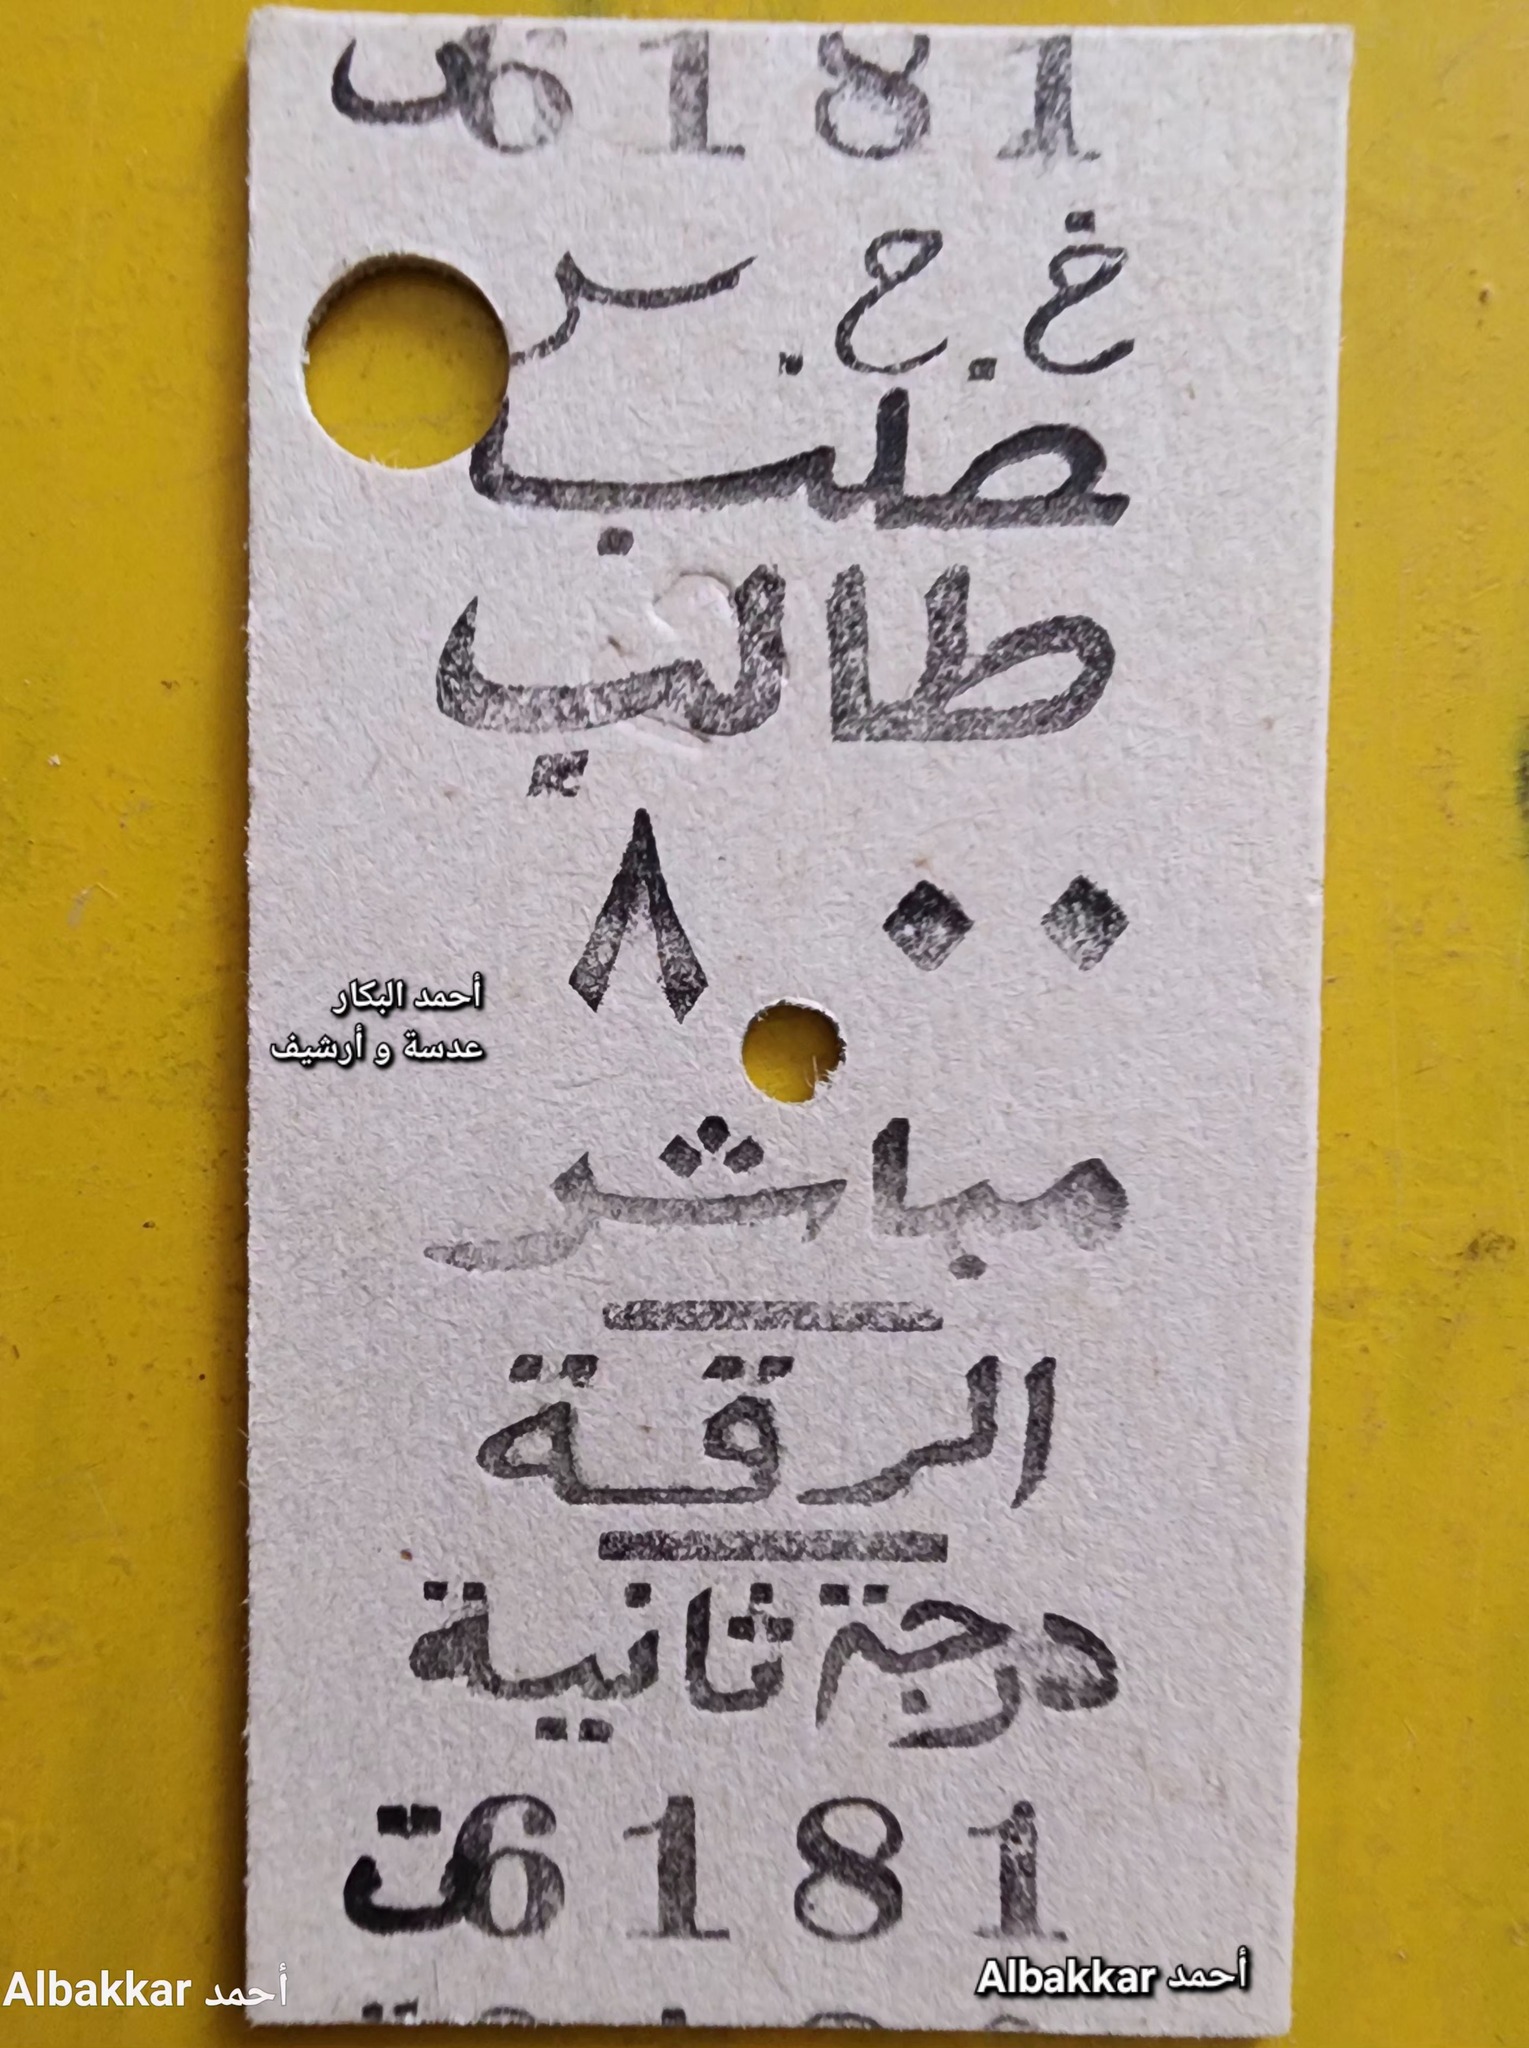 ت 6181
خ.ح.س
حلب
طالب
٨ ٠٠
أحمد البكار
عدسة و أرشيف
مباشر
الرقة
درجة ثانية
ت 6181
Albakkar أحمد
Albakkar أحمد